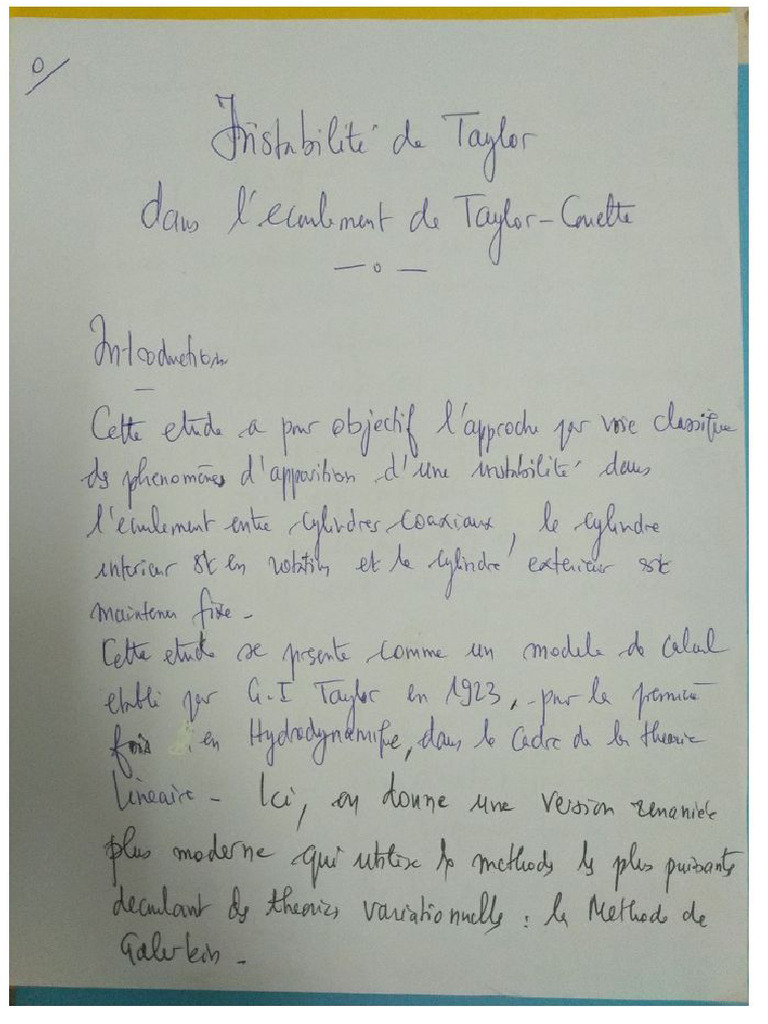 0/
Instabilité de Taylor
dans l'ecoulement de Taylor-Couette
— o —
Introduction
—
Cette etude a pour objectif l'approche par voie classique
des phenomènes d'apparition d'une instabilité dans
l'ecoulement entre cylindres coaxiaux, le cylindre
interieur est en rotation et le cylindre exterieur est
maintenu fixe -
Cette etude se présente comme un modele de calcul
etabli par G.I Taylor en 1923, pour la première
fois en Hydrodynamique, dans le cadre de la theorie
lineaire - Ici, on donne une version remaniée
plus moderne qui utilise les methodes les plus puissantes
decoulant des theories variationnelles : la Methode de
Galerkin -